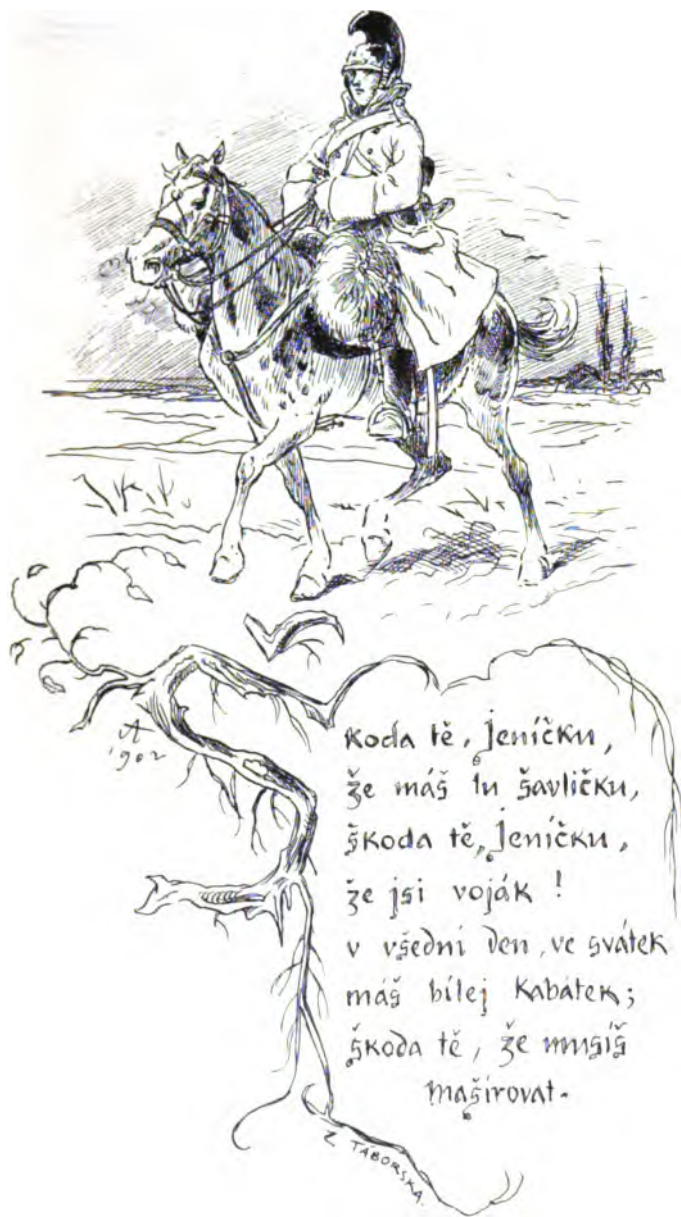 Škoda tě, Jeníčku,
že máš tu šavličku,
škoda tě, Jeníčku,
že jsi voják !
v všední den, ve svátek
máš bílej kabátek;
škoda tě, že musíš
mašírovat.
1902
Z TÁBORSKA.